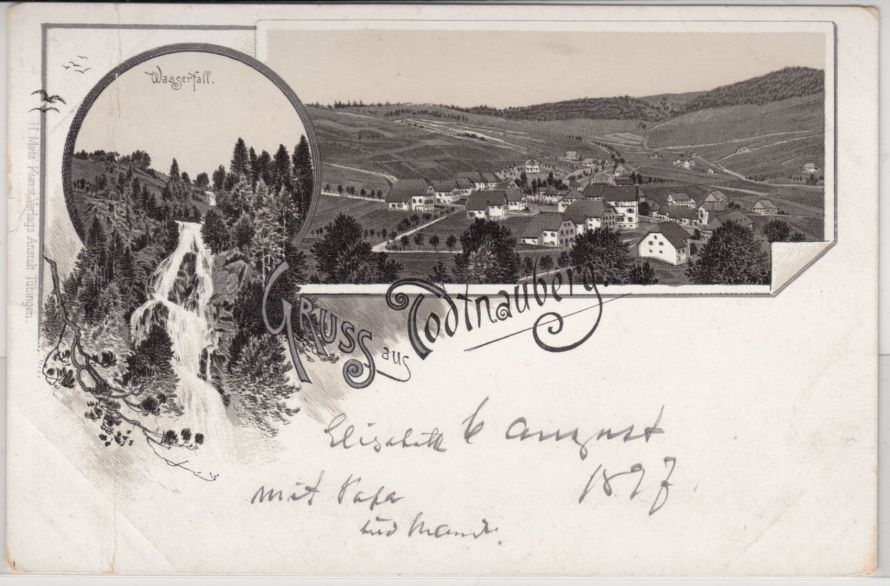 Wasserfall.
H. Metz Kunst-Verlags Anstalt Tübingen.
Gruss aus Todtnauberg.
Elisabeth 6 August
1897.
mit Papa
und